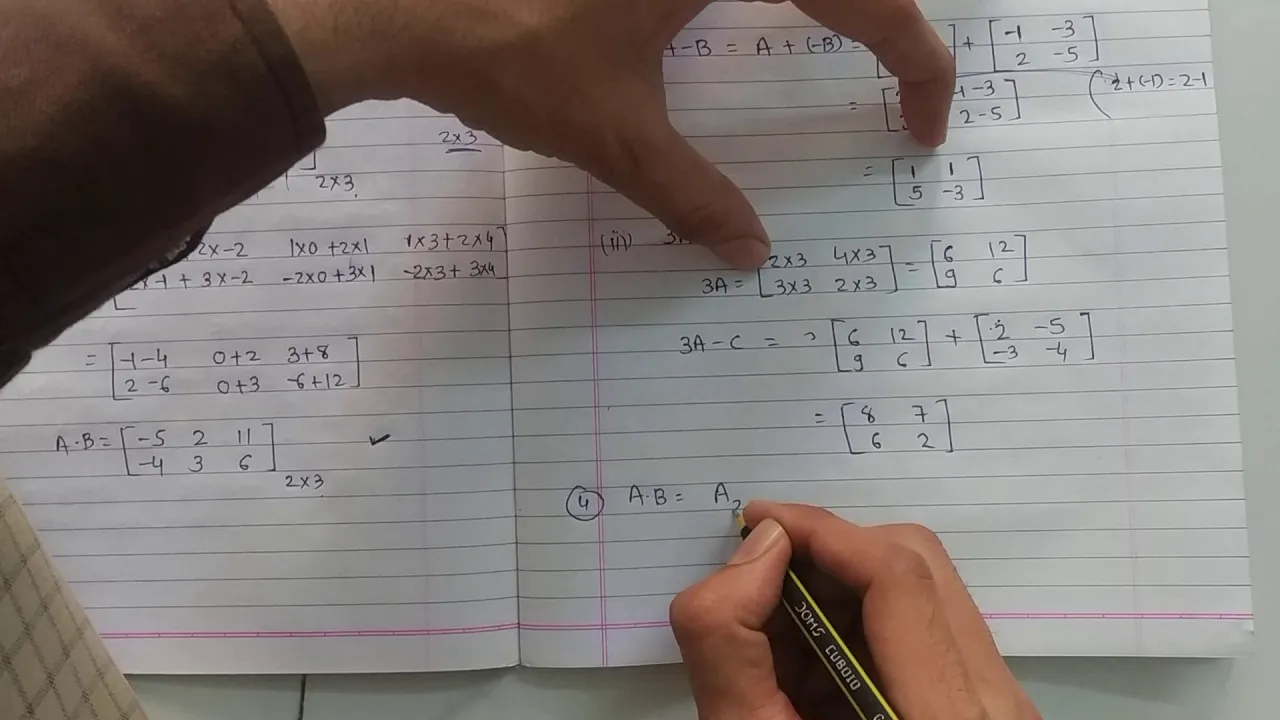 2×3
2×3
2×-2 1×0+2×1 1×3+2×4
×-1+3×-2 -2×0+3×1 -2×3+3×4
= [-1-4 0+2 3+8
2-6 0+3 -6+12]
A·B = [-5 2 11
-4 3 6]
2×3
-B = A+(-B) = ] + [-1 -3
2 -5]
= [ -3
2-5]
2+(-1)=2-1
= [1 1
5 -3]
(ii)
3A = [2×3 4×3
3×3 2×3] = [6 12
9 6]
3A-C = [6 12
9 6] + [2 -5
-3 -4]
= [8 7
6 2]
4 A·B = A2
DOMS CUBOID